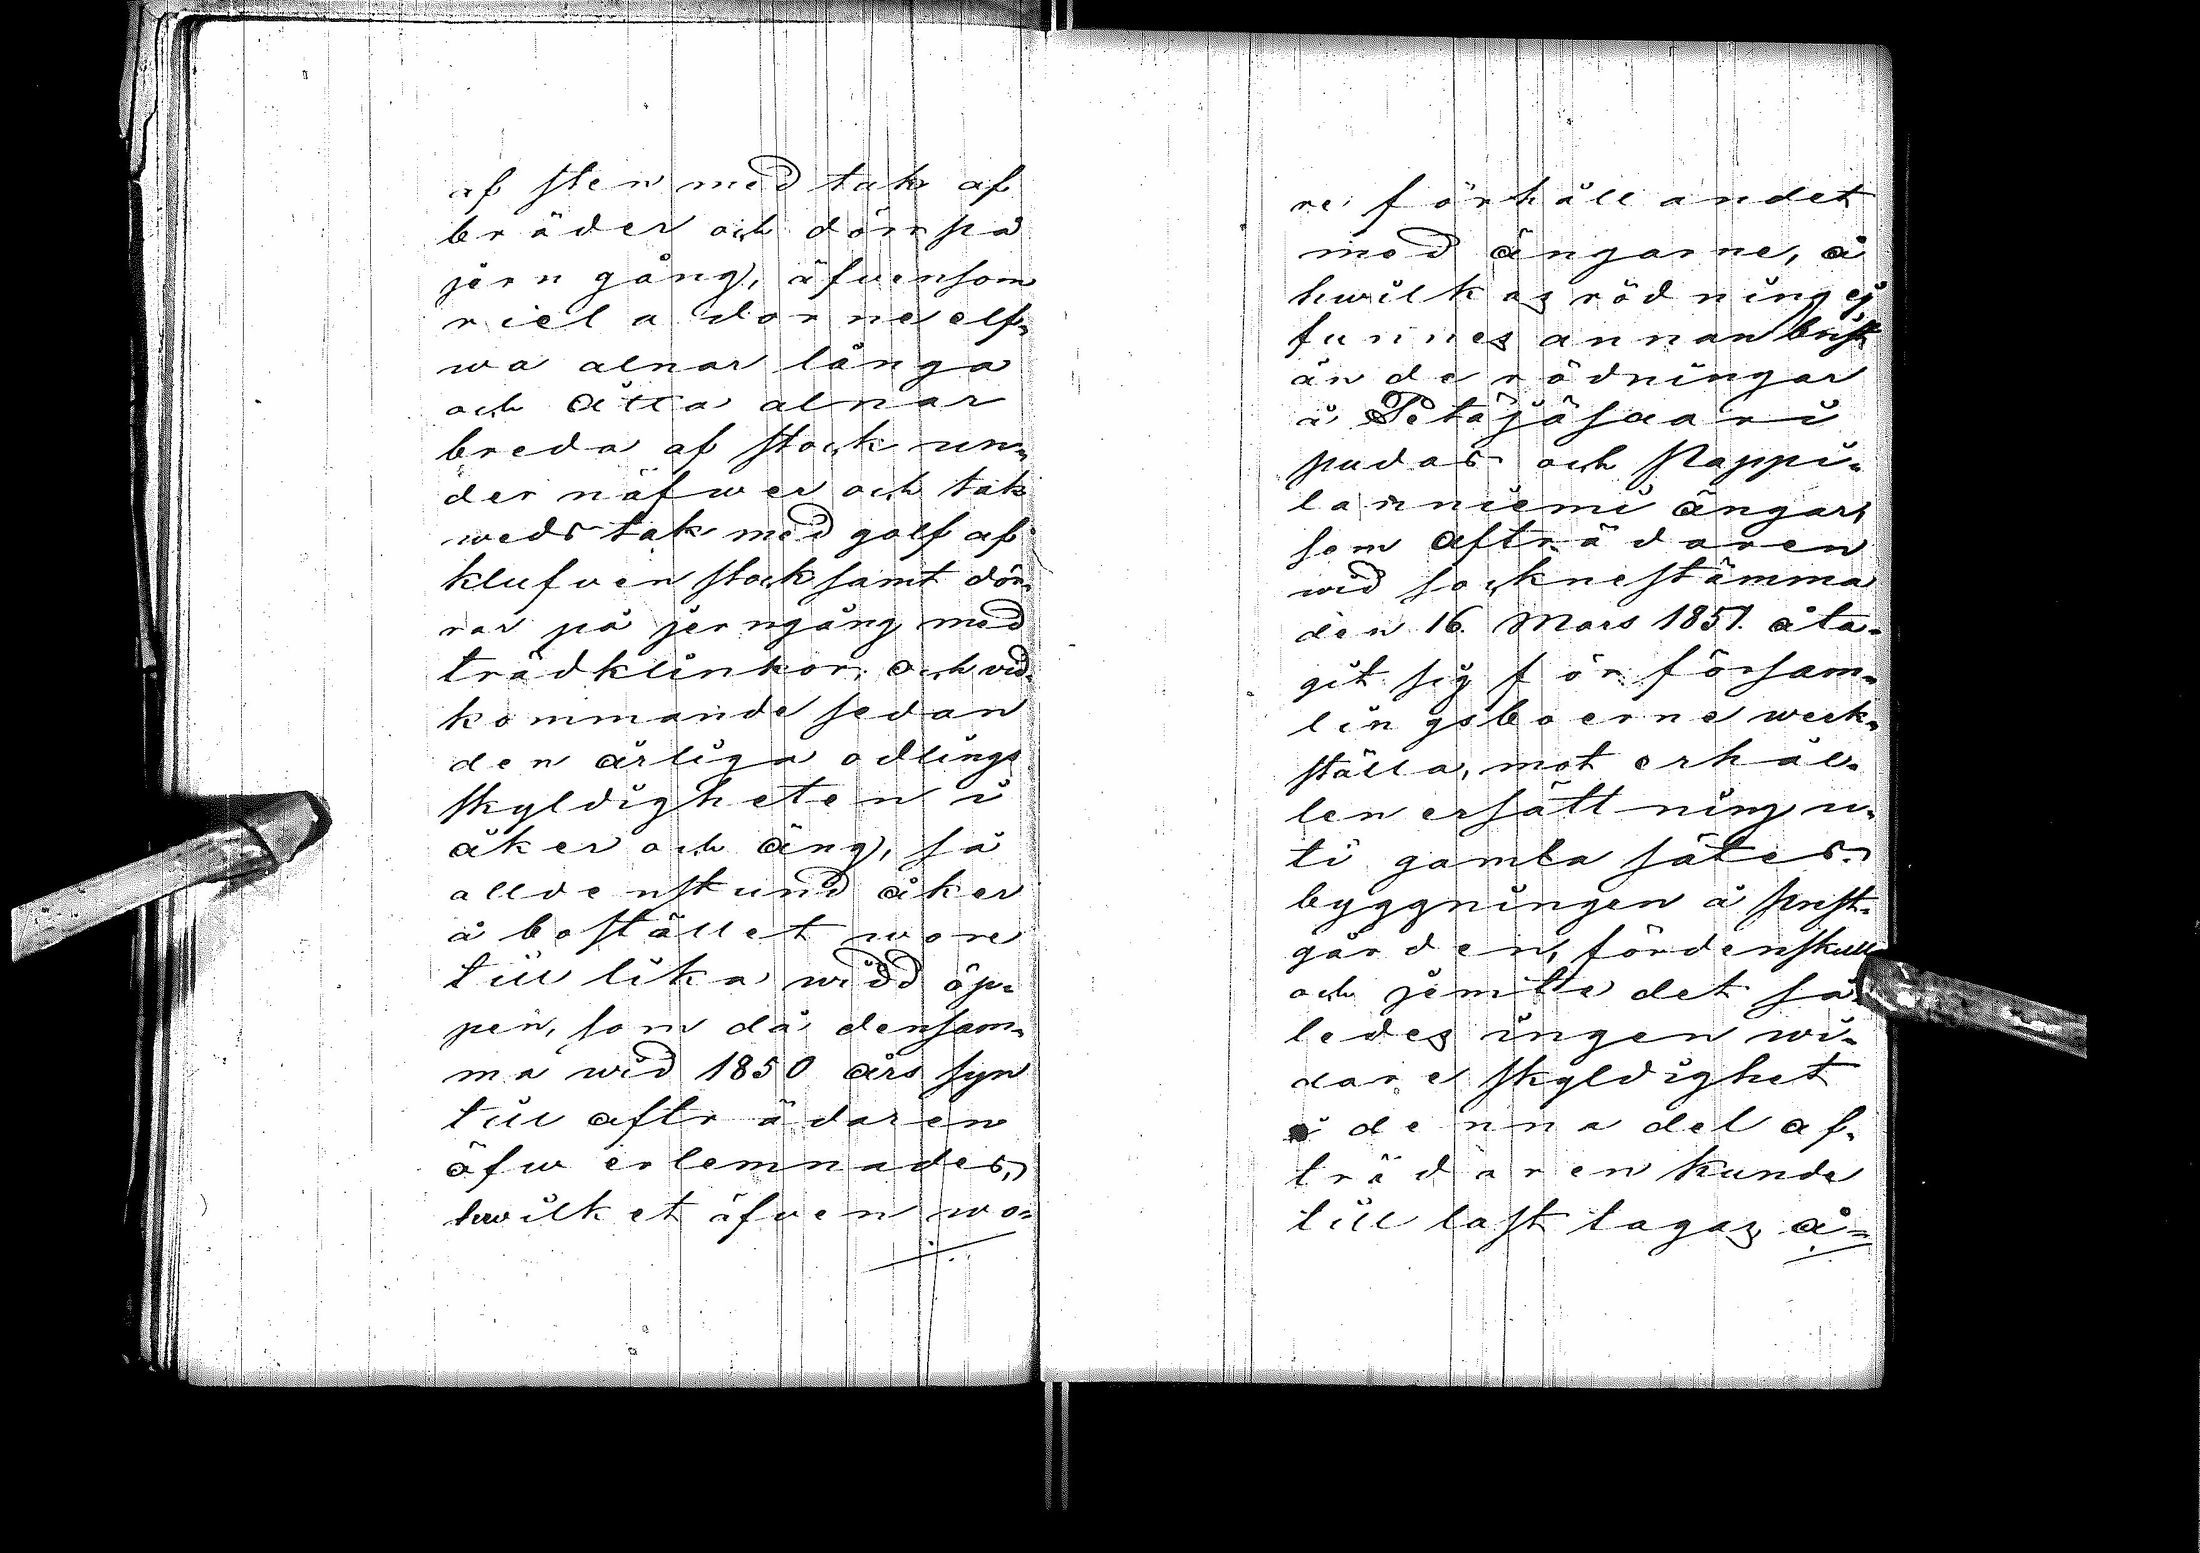 af sten med tak af
bräder och dörr på
jern gång, äfvensom
riel adorne elf-
wa alnar långa
och åtta alnar
breda af stock un-
der näfwer och tak
weds tak med golf af
klufven stock samt dör-
rar på jerngång med
trädklinkor; och vid-
kommande sedan
den årliga odlings
skyldigheten i
åker och äng, så
alldenstund åker
å bostället wore
till lika widd öp-
pen, som då densam-
ma wid 1850 års syn
till afträdaren
öfwerlemnades,
hwilket äfven wo-
re förhållandet
med ängarne, å
hwilkas rödning ej
funnes annan brist
än de rödningar
å Petäjäsaari
pudas och Nappi-
lanniemi ängar,
som afträdaren
wid socknestämma
den 16. Mars 1851. åta-
git sig för försam-
lingsboerne werk-
ställa, mot erhål-
len ersättning u-
ti gamla sätes-
byggningen å prest-
gården, fördenskull
och jemte det så
ledes ingen wi-
dare skyldighet
i denna del af-
trädaren kunde
till last lagas å-